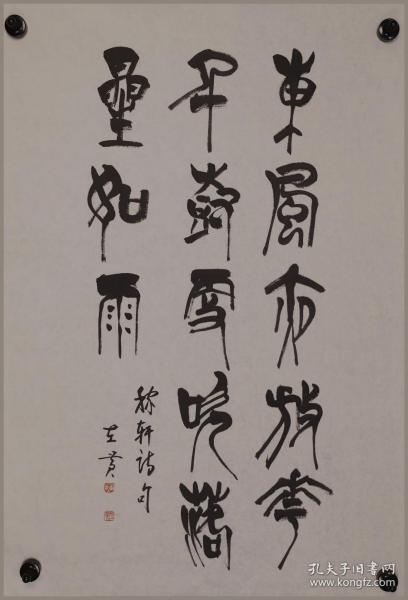 東風夜放華
千樹更吹落
星如雨
稼軒詩句
孔夫子旧书网
www.kongfz.com